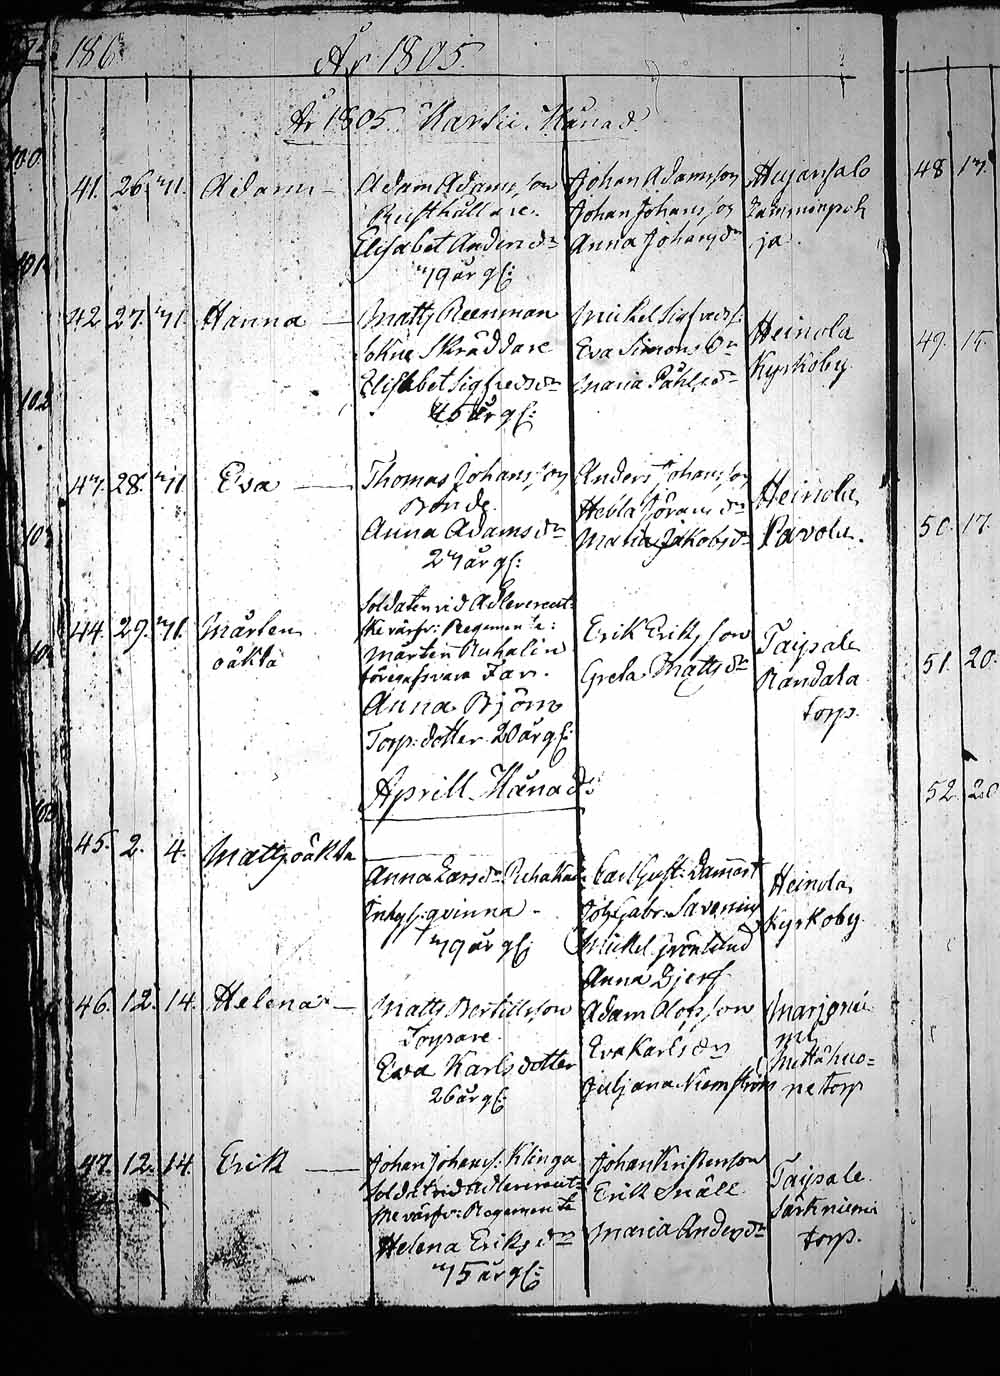 186
År 1805.
År 1805. Martii Månad.
41. 26. 31. Adam —
Adam Adamsson
Rusthållare.
Elisabet Andersdr
39 år gl:
Johan Adamsson
Johan Johansson
Anna Johansdr
Hujansalo
ja.
42 27. 31. Hanna —
Matts Reenman
Sokne Skräddare
Elisabet Sigfredsdr
45 år gl:
Mickel Sigfredss:
Eva Simonsdr
Maria Påhlsdr
Heinola
Kyrkoby.
43. 28. 31 Eva —
Thomas Johansson
Bonde.
Anna Adamsdr
23 år gl:
Anders Johansson
Hebla Jöransdr
Maria Jakobsdr
Heinola
Pavola.
44. 29. 31. Mårten
oäkta
Soldaten vid Adlercreut-
ske värfv: Regemente:
Mårten Ruhalin
föregifvara Far.
Anna Björn
Torp: dotter 20 år gl:
Erik Eriksson
Greta Mattsdr
Taipale
Randala
torp.
Aprill Månad:
45. 2. 4. Matts oäkta
Anna Larsdr
Inhys: qvinna -
39 år gl:
Carl Gust: Dammert
Joh: Gabr: Savenius
Mickel Grönlund
Anna Djerf
Heinola
Kyrkoby
46. 12. 14. Helena —
Matts Bertillsson
Torpare
Eva Karlsdotter
26 år gl:
Adam Olofsson
Eva Karlsdr
Juljana Niemström
Marjonie
mi
Mettähuo-
ne torp
47. 12. 14. Erik —
Johan Johanss: Klinga
Soldat vid Adlercreut-
ske värfv: Regemente
Helena Eriksdr
35 år gl:
Johan Kristersson
Erik Snäll
Maria Andersdr
Taipale
Särkniemi
torp.
48 13.
49. 15.
50. 17.
51. 20.
52. 20